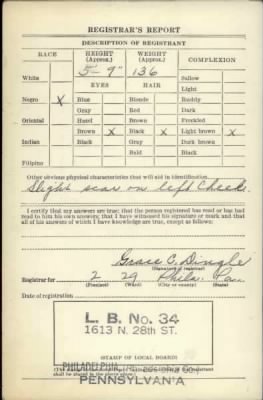 REGISTRAR'S REPORT
DESCRIPTION OF REGISTRANT
RACE HEIGHT (Approx.) WEIGHT (Approx.) COMPLEXION
5'-9" 136
White Sallow
EYES HAIR Light
Negro X Blue Blonde Ruddy
Gray Red Dark
Oriental Hazel Brown Freckled
Brown X Black X Light brown X
Indian Black Gray Dark brown
Bald Black
Filipino
Other obvious physical characteristics that will aid in identification
Slight scar on left cheek.
I certify that my answers are true; that the person registered has read or has had
read to him his own answers; that I have witnessed his signature or mark and that
all of his answers of which I have knowledge are true, except as follows:
Grace C. Dingle
(Signature of registrar)
Registrar for 2 29 Phila. Pa.
(Precinct) (Ward) (City or County) (State)
Date of registration
L. B. No. 34
1613 N. 28th ST.
(STAMP OF LOCAL BOARD)
PHILADELPHIA
shall be
PENNSYLVANIA